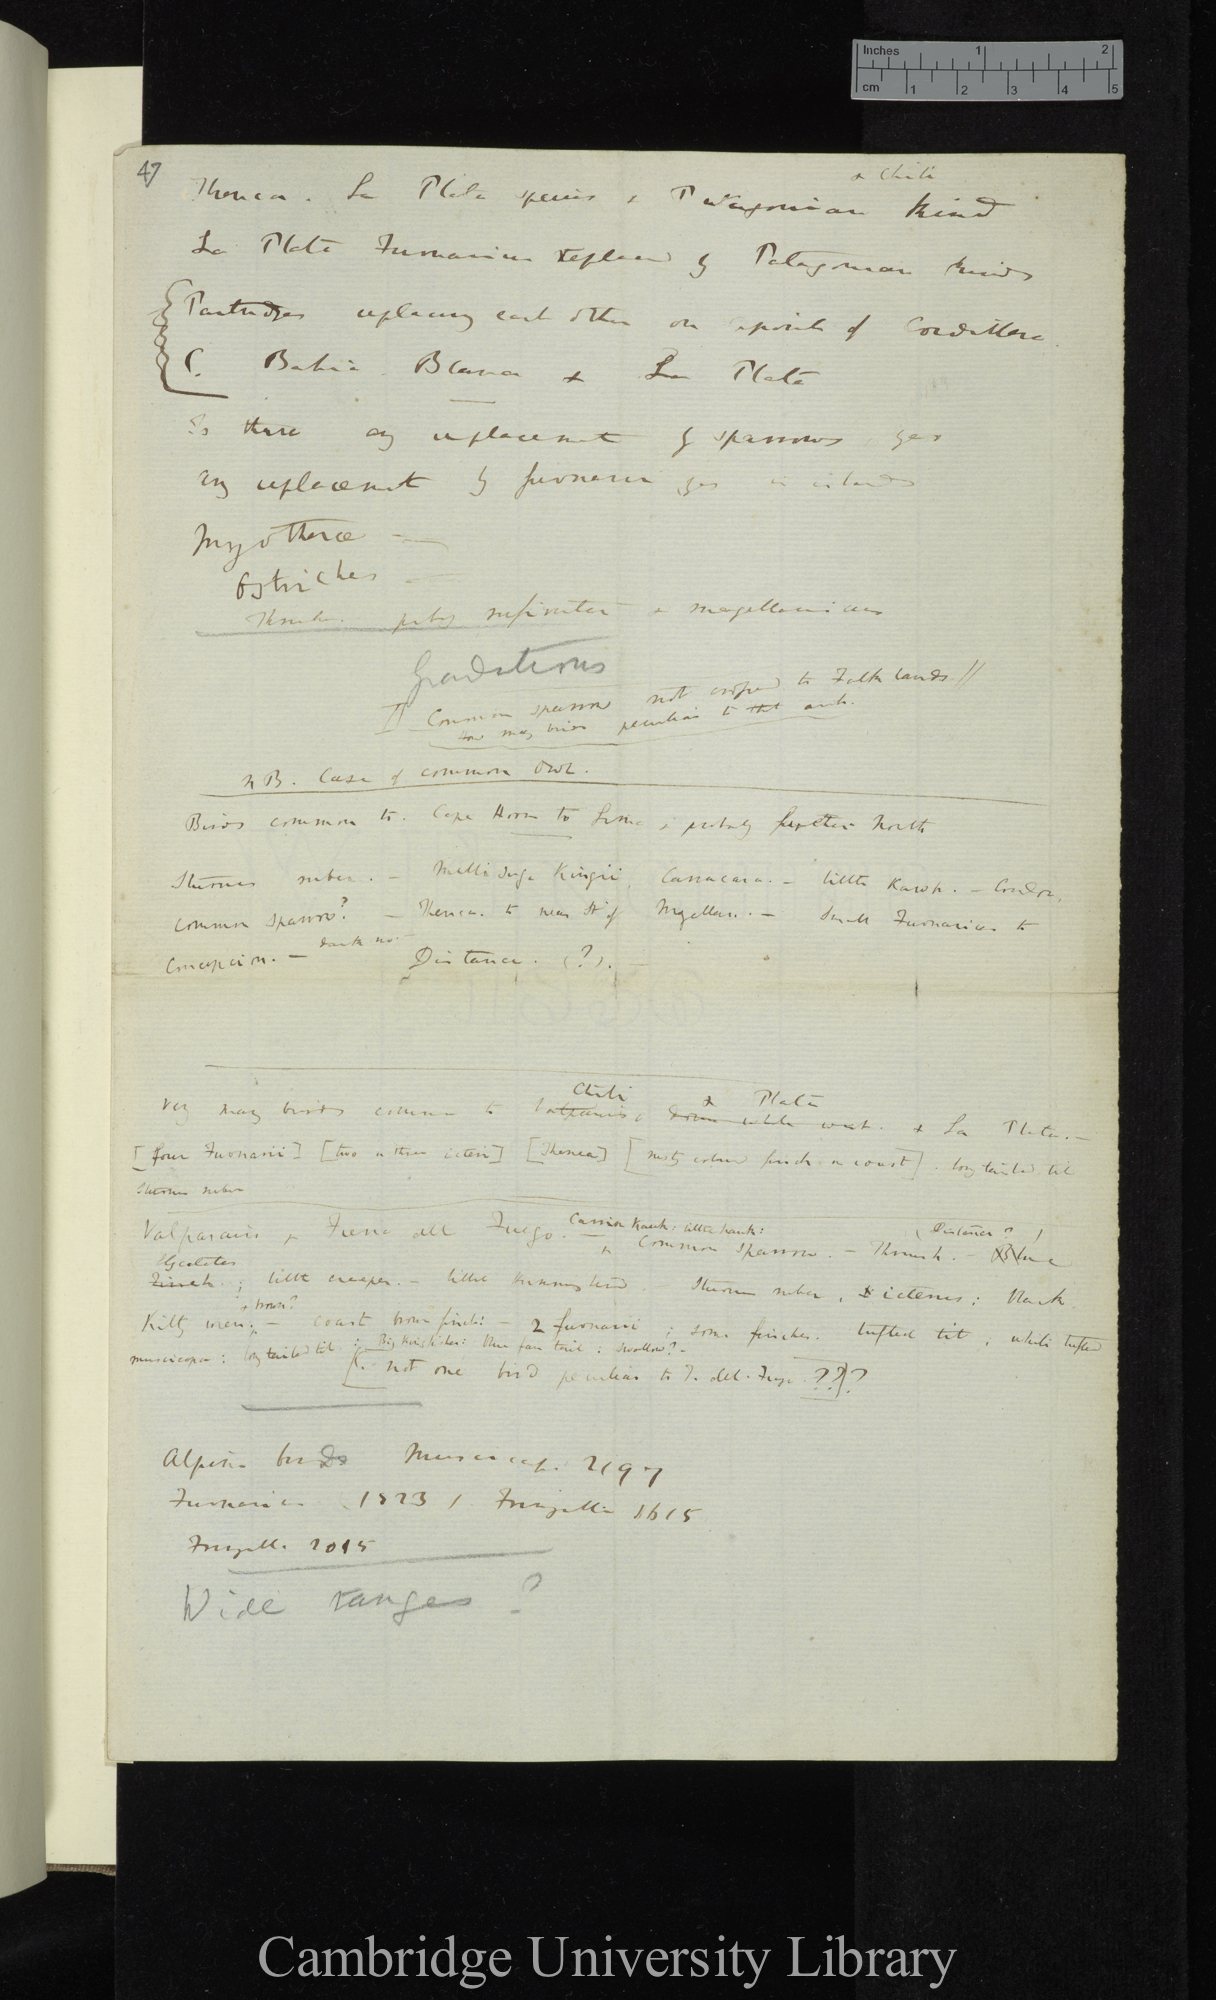 Inches 1 2
cm 1 2 3 4 5
47
& Chili
Thenca. La Plata species & Patagonian kind
La Plata Furnarius replaced by Patagonian kinds
Partridges replacing each other on points of Cordillera
Bahia Blanca & La Plata
Is there any replacement of sparrows yes
any replacement of furnarii yes in islands
Myothera —
Ostriches —
Thrush. & magellanicus
Gradations
Common sparrow not crossed to Falklands //
How many birds peculiar to that arch.
N B. Case of common Owl.
Birds common to. Cape Horn to Lima & probably further North
Sturnus ruber. — Mellisuga Kingii, Carracara. — little Hawk. — Condor,
common sparrow? — Thenca. to near St of Magellan. — Small Furnarius to
Concepcion. — Distance. (?). —
Chili & Plata
Very many birds common to Valparaiso & La Plata. —
[four Furnarii] [two or three icteri] [Thenca] [rusty colored finch on coast]. long tailed tit
Sturnus ruber
Carrion Hawk: little hawk: (Distance?)
Valparaiso & Tierra del Fuego. — & Common Sparrow. — Thrush. — Blue
little creeper. — little Humming bird. — Sturnus ruber, icterus; black
& brown?
Kitty wren; — coast brown finch: — 2 furnarii; some finches. tufted tit; white tufted
muscicapa: long tailed tit; Big Kingfisher: Blue fan tail: swallow? —
not one bird peculiar to T. del. Fuego. ???
Alpine birds Muscicap. 2197
Furnarius 1823, Fringilla 1615
Fringilla 2015
Wide ranges?
Cambridge University Library